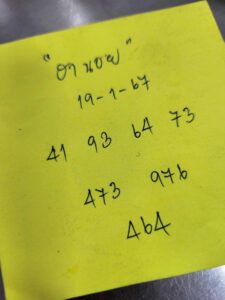 "ฮานอย"
19-1-67
41 93 64 73
473 976
464